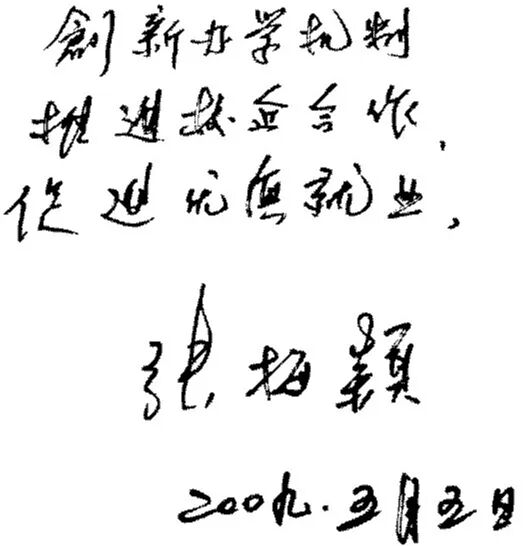 創新办学机制
推進校企合作,
促進优质就业,
张梅颖
2009.五月五日